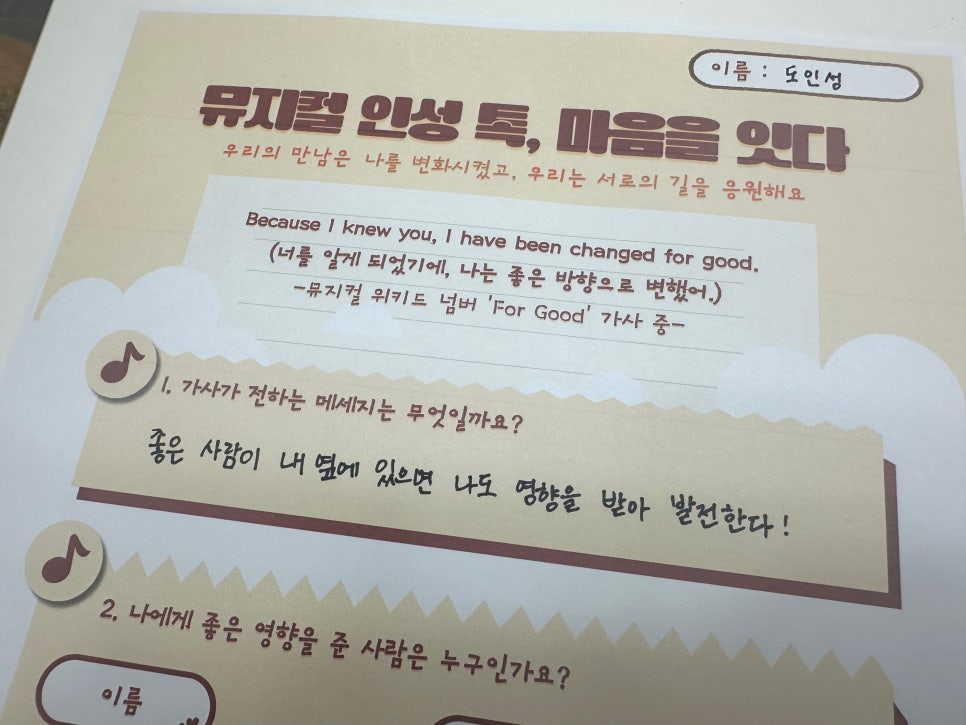 이름 : 도인성
뮤지컬 인성 톡, 마음을 잇다
우리의 만남은 나를 변화시켰고, 우리는 서로의 길을 응원해요
Because I knew you, I have been changed for good.
(너를 알게 되었기에, 나는 좋은 방향으로 변했어.)
-뮤지컬 위키드 넘버 'For Good' 가사 중-
1. 가사가 전하는 메세지는 무엇일까요?
좋은 사람이 내 옆에 있으면 나도 영향을 받아 발전한다!
2. 나에게 좋은 영향을 준 사람은 누구인가요?
이름